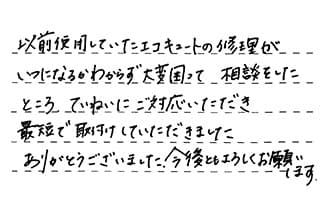 以前使用していたエコキュートの修理が
いつになるかわからず大変困って 相談をした
ところ ていねいに ご対応いただき
最短で取付けしていただきました
ありがとうございました。今後ともよろしくお願い
します。